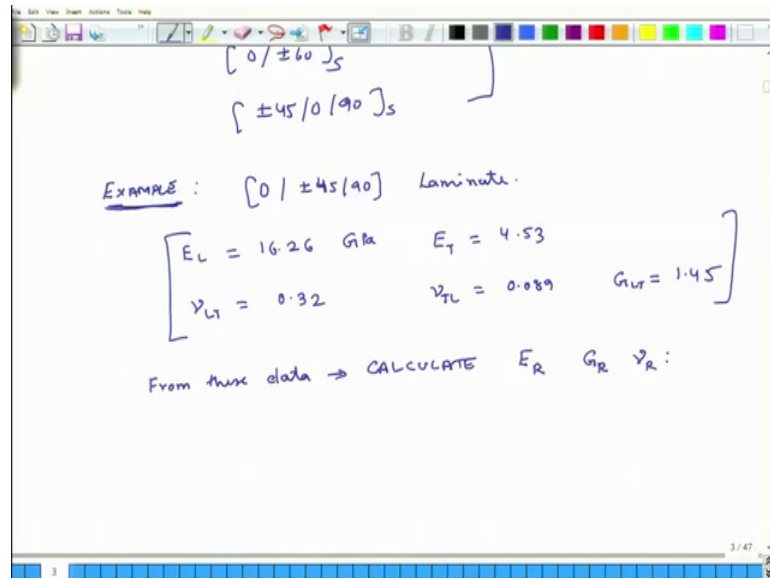 File Edit View Insert Actions Tools Help
[0/±60]s
[±45/0/90]s
EXAMPLE : [0/±45/90] Laminate.
E_L = 16.26 GPa E_T = 4.53
ν_LT = 0.32 ν_TL = 0.089 G_LT = 1.45
From these data → CALCULATE E_R G_R ν_R :
3 / 47
3